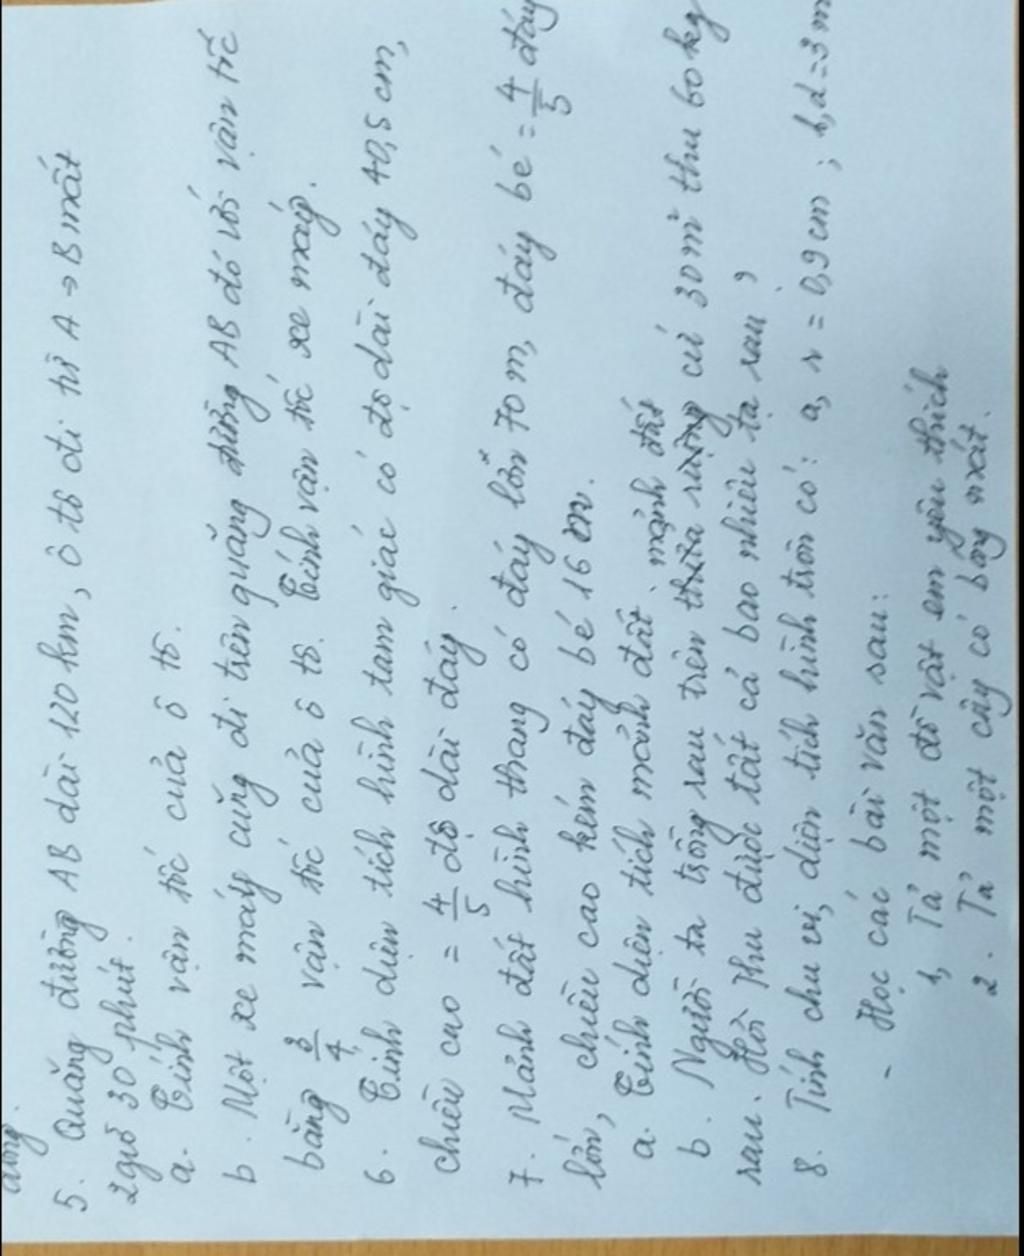 5. Quãng đường AB dài 120 km, ô tô đi từ A → B mất
2 giờ 30 phút.
a. Tính vận tốc của ô tô.
b. Một xe máy cũng đi trên quãng đường AB đó với vận tốc
bằng 3/4 vận tốc của ô tô. Tính vận tốc xe máy.
6. Tính diện tích hình tam giác có độ dài đáy 40,5 cm,
chiều cao = 4/5 độ dài đáy.
7. Mảnh đất hình thang có đáy lớn 70 m, đáy bé = 4/5 đáy
lớn, chiều cao kém đáy bé 16 m.
a. Tính diện tích mảnh đất.
mảnh đất
b. Người ta trồng rau trên thửa ruộng cứ 30 m² thu 60 kg
rau. Hỏi thu được tất cả bao nhiêu tạ rau ?
8. Tính chu vi, diện tích hình tròn có: a, r = 0,9 cm ; b, d = 3 m
- Học các bài văn sau:
1, Tả một đồ vật em yêu thích
2. Tả một cây có bóng mát.